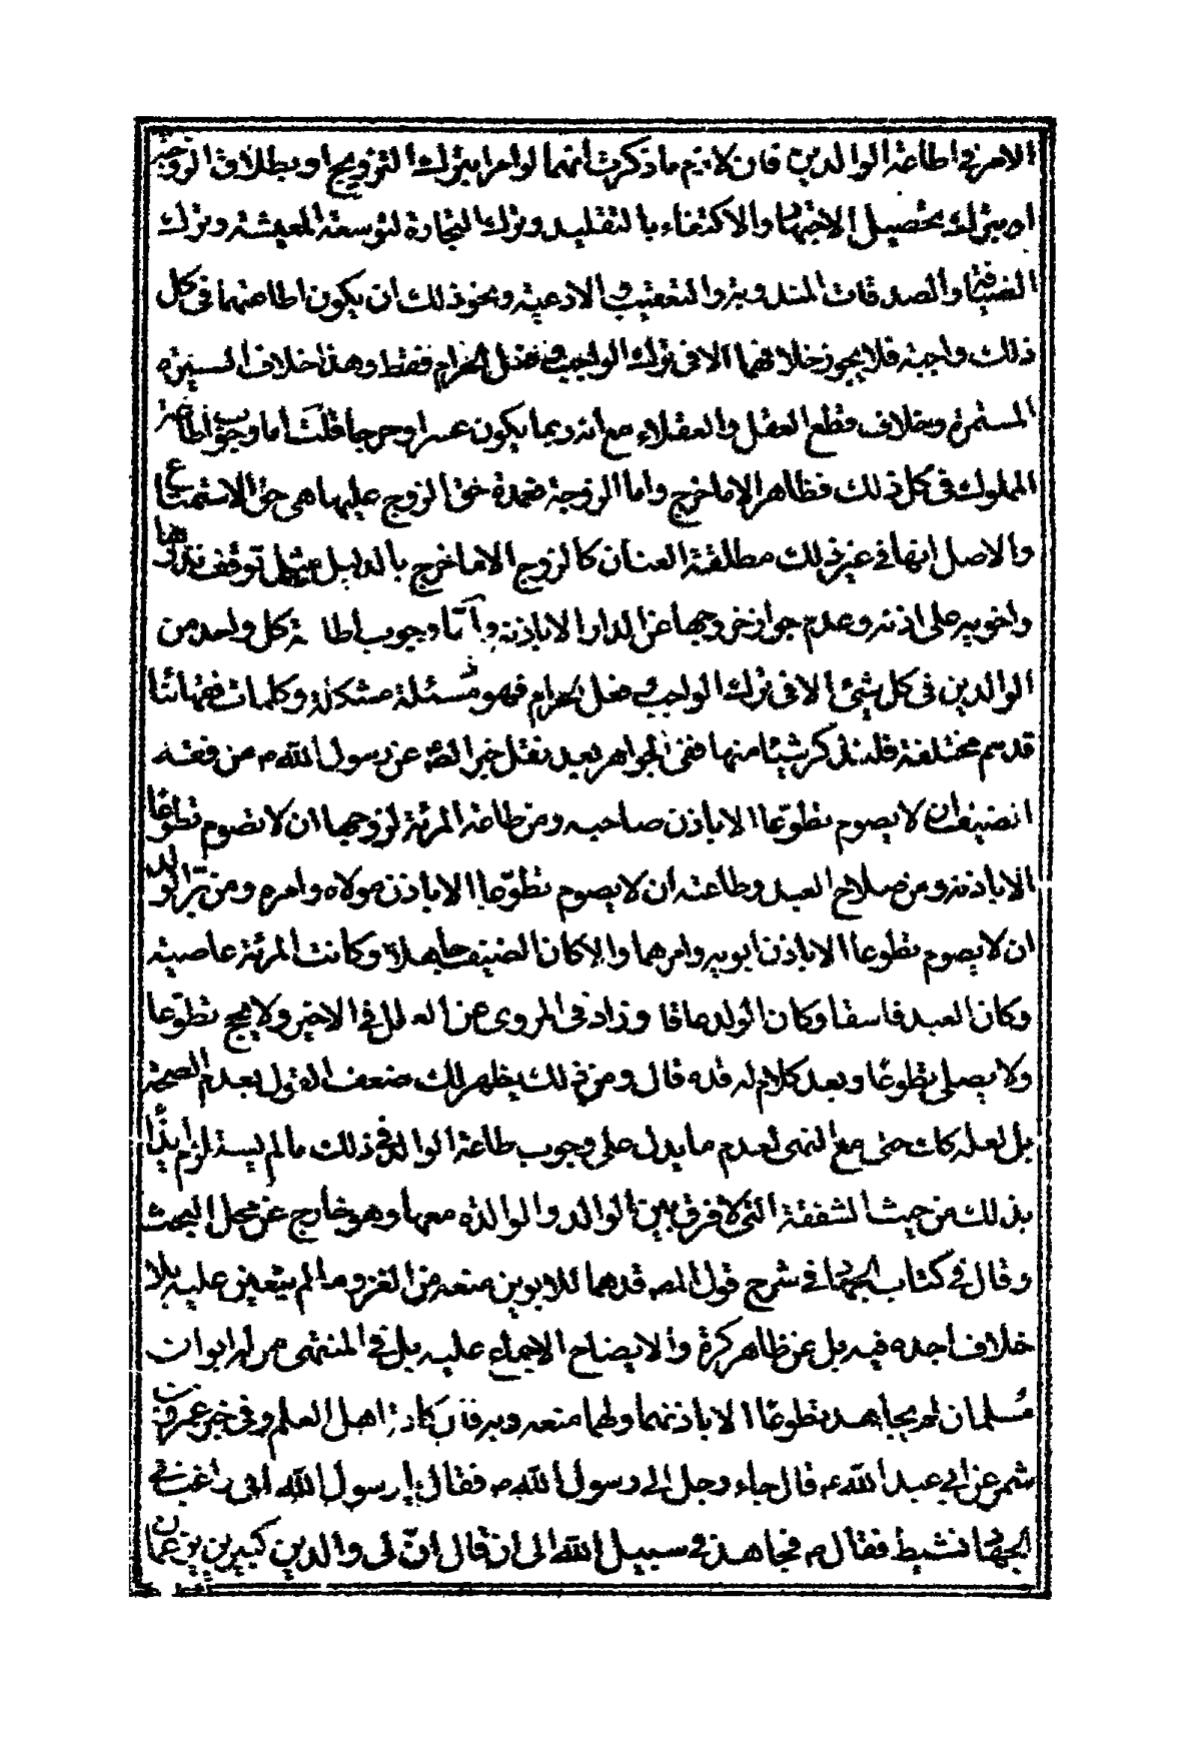 الامر في اطاعة الوالدين فان لازم ما ذكرت انهما لو امرا بترك التزويج او بطلاق الزوجة
او بترك تحصيل الاجتهاد والاكتفاء بالتقليد وترك التجارة لتوسعة المعيشة وترك
الضيافة والصدقات المندوبة والتعقيب والادعية ونحو ذلك ان يكون اطاعتهما في كل
ذلك واجبة فلا يجوز خلافهما الا في ترك الواجب وفعل الحرام فقط وهذا خلاف السيرة
المستمرة وخلاف قطع العقل والعقلاء مع انه ربما يكون عسرا وحرجا قلت اما وجوب اطاعة
المملوك في كل ذلك فظاهر الا ما خرج واما الزوجة فعمدة حق الزوج عليها هي حق الاستمتاع
والاصل انها في غير ذلك مطلقة العنان كالزوج الا ما خرج بالدليل مثل توقف نذرها
واخويه على اذنه وعدم جواز خروجها عن الدار الا باذنه وامّا وجوب اطا عة كل واحد من
الوالدين في كل شيئ الا في ترك الواجب وفعل الحرام فهو مسئلة مشكلة وكلمات فقهائنا
قدسم مختلفة فلنذكر شيئا منها ففي الجواهر بعد نقل خبر الصّه عن رسول الله م من فقه
الضيف ان لا يصوم تطوّعا الا باذن صاحبه ومن طاعة المرئة لزوجها ان لا تصوم تطوّعا
الا باذنه ومن صلاح العبد وطاعته ان لا يصوم تطوّعا الا باذن مولاه وامره ومن برّ الولد
ان لا يصوم تطوعا الا باذن ابويه وامرهما والا كان الضيف جاهلا وكانت المرئة عاصية
وكان العبد فاسقا وكان الولد عاقا وزاد في المروى عن العلل في الاخير ولا يحج تطوّعا
ولا يصلى تطوعًا وبعد كلام له قده قال ومن ذلك يظهر لك ضعف القول بعدم الصحة
بل لعله كان حتى مع النهى لعدم ما يدل على وجوب طاعة الوالد في ذلك ما لم يستلزم ايذاءً
بذلك من حيث الشفقة التى لا فرق بين الوالد والوالدة معها وهو خارج عن محل البحث
وقال في كتاب الجهاد في شرح قول المصه قدهما للابوين منعه من الغزو ما لم يتعين عليه بلا
خلاف اجده فيه بل عن ظاهر كرة والايضاح الاجماع عليه بل في المنتهى من له ابوان
مسلمان لم يجاهد تطوعًا الا باذنهما ولهما منعه وبه قال كافة اهل العلم وفي خبر عمرو بن
شمر عن ابي عبد الله ع قال جاء رجل الى رسول الله م فقال يا رسول الله انى راغب في
الجهاد نشيط فقال م فجاهد في سبيل الله الى ان قال انّ لى والدين كبيرين يزعمان